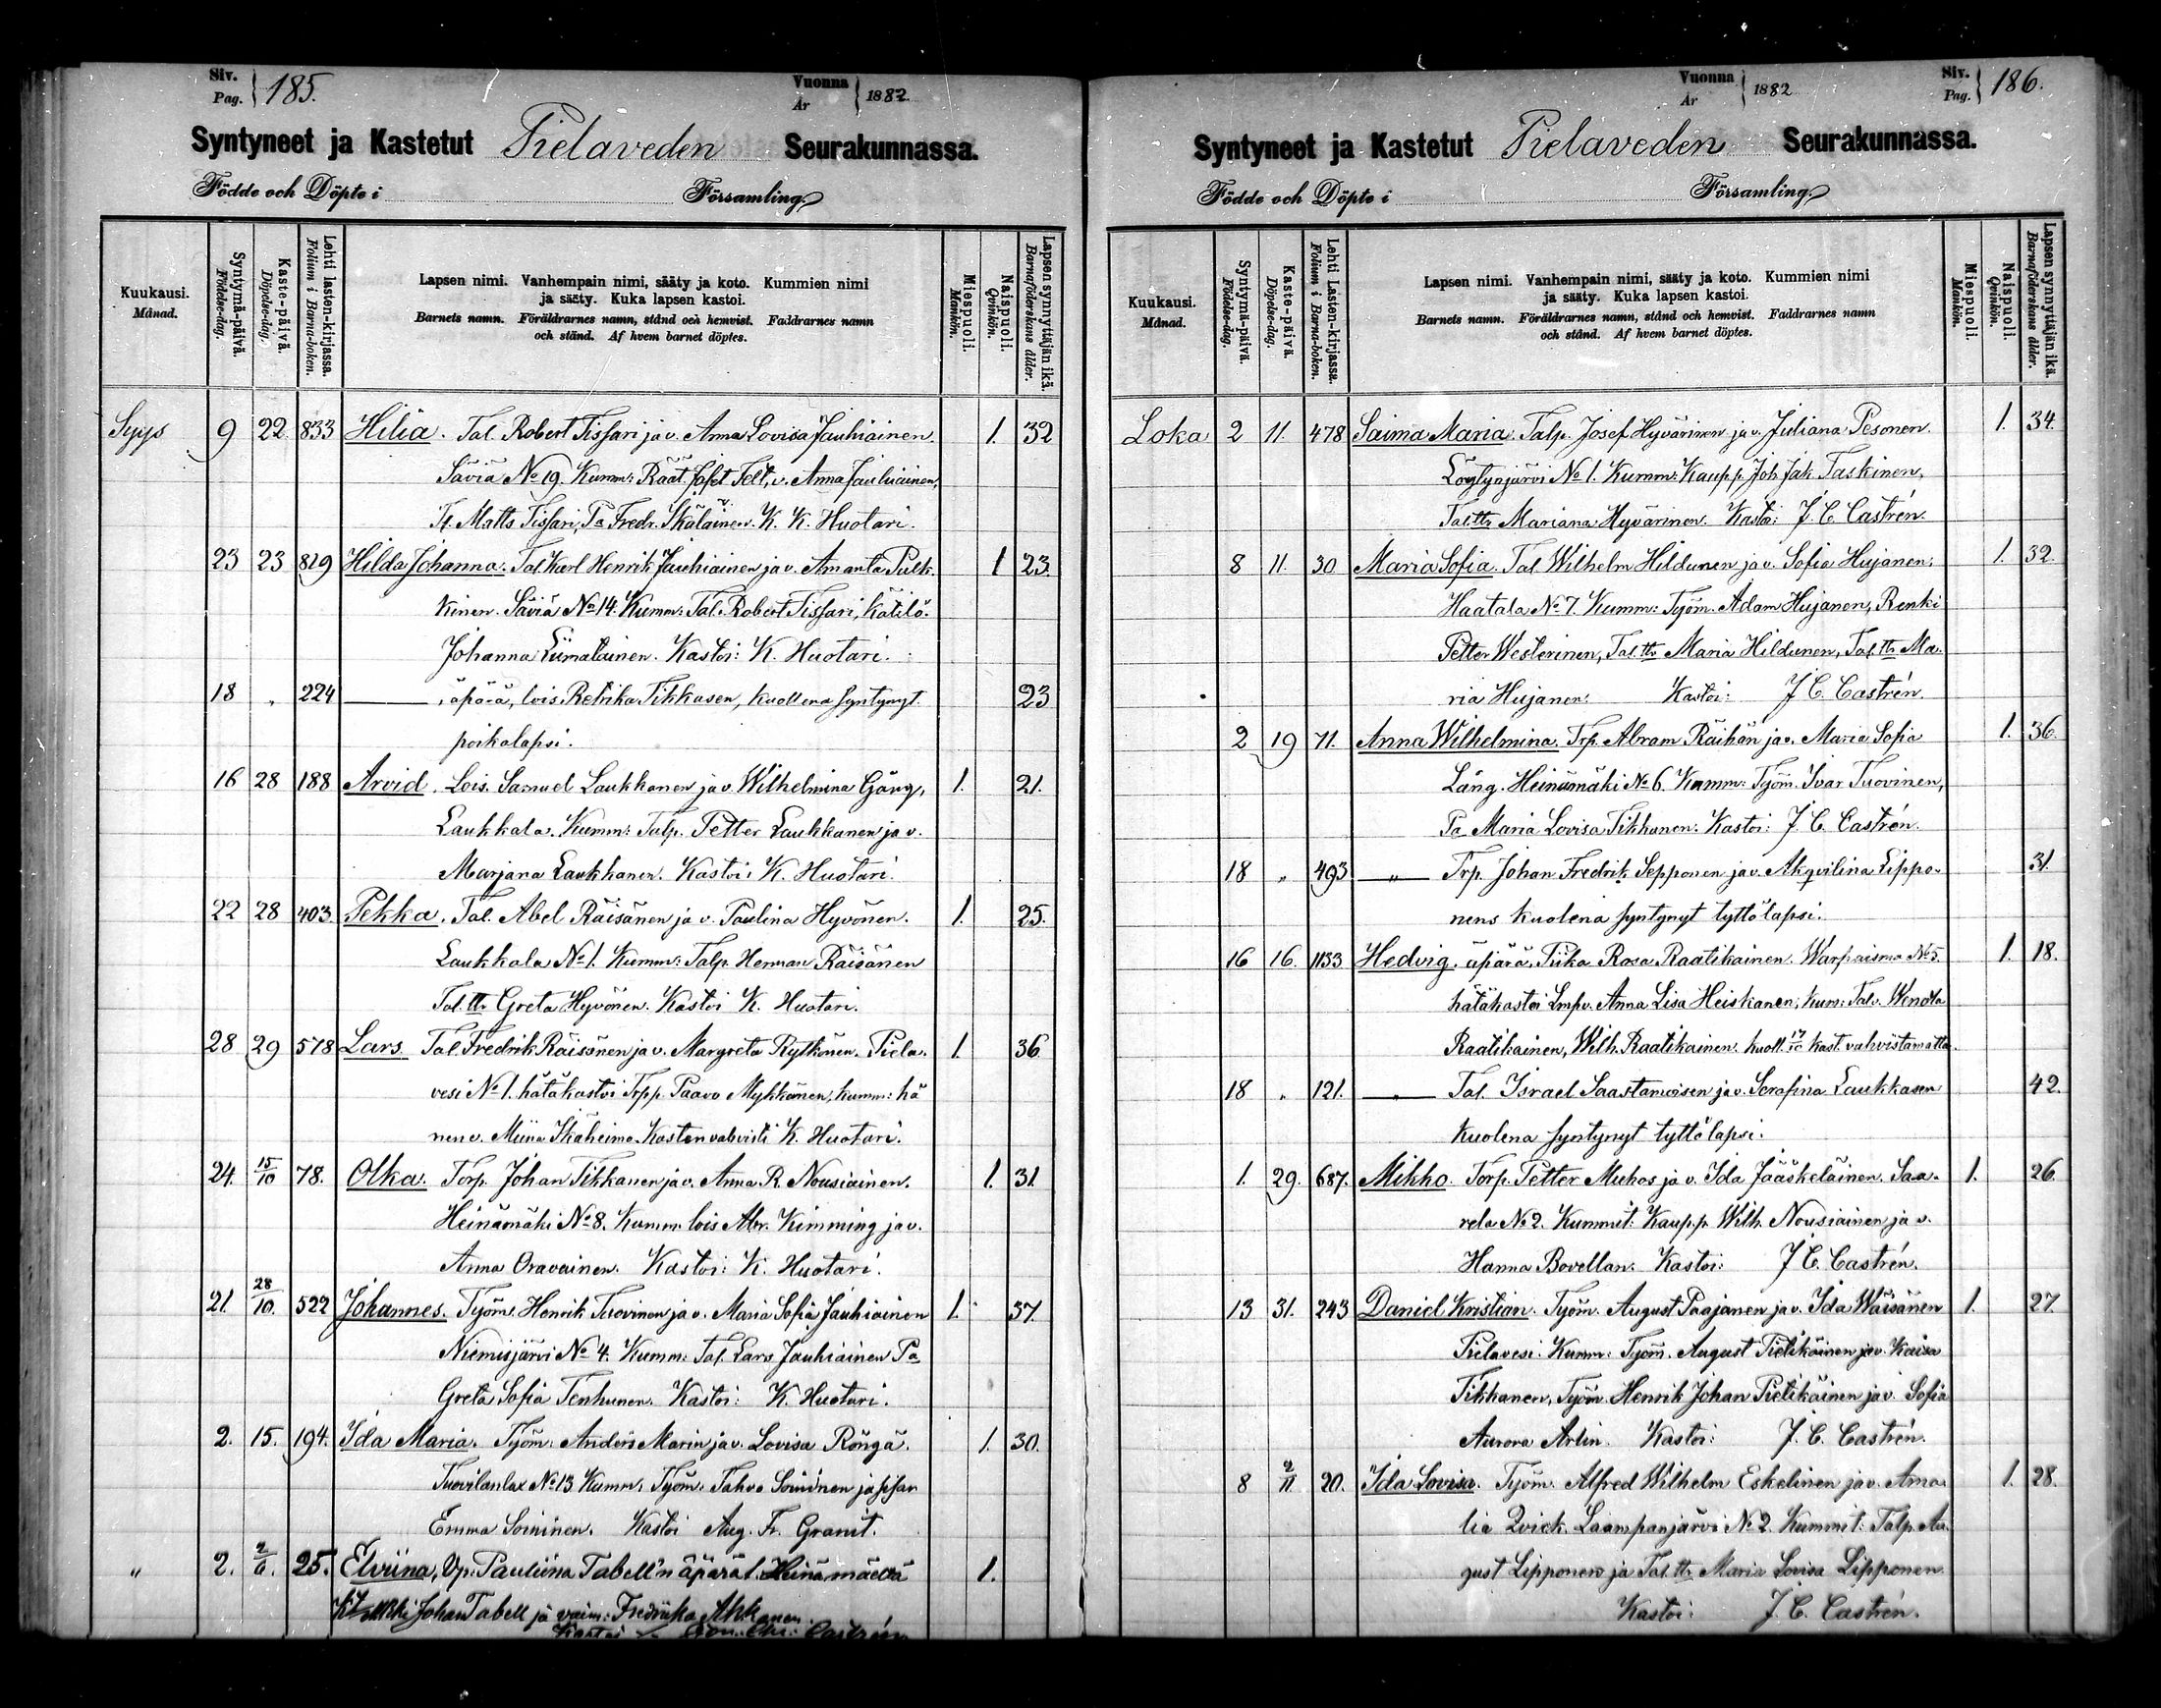 Siv. Pag. 185. Vuonna År 1882
Syntyneet ja Kastetut Pielaveden Seurakunnassa.
Födde och Döpte i Församling.
Kuukausi. Månad.
Syntymä-päivä. Födelse-dag.
Kaste-päivä. Döpelse-dag.
Lehti lasten-kirjassa. Folium i Barna-boken.
Lapsen nimi. Vanhempain nimi, sääty ja koto. Kummien nimi
ja sääty. Kuka lapsen kastoi.
Barnets namn. Föräldrarnes namn, stånd och hemvist. Faddrarnes namn
och stånd. Af hvem barnet döptes.
Miespuoli. Mankön.
Naispuoli. Qvinkön.
Lapsen synnyttäjän ikä. Barnaföderskans ålder.
Syys 9 22 833 Hilia. Tal. Robert Tissari ja v. Anna Lovisa Jauhiainen. 1. 32
Säviä No 19. Kumm: Räät. Jafet Telt, v. Anna Jauhiainen,
Tt. Matts Tissari, Pa Fredr. Ikäläinen. K. K. Huotari.
23 23 819 Hilda Johanna. Tal. Karl Henrik Jauhiainen ja v. Amanta Pulk- 1 23.
kinen. Säviä No 14. Kumm: Tal. Robert Tissari, Kätilö.
Johanna Liimatainen. Kastoi: K. Huotari.
18 " 224 äpärä, lois. Retrika Tikkasen, kuollena syntynyt 23
poikalapsi.
16 28 188 Arvid. Lois. Samuel Laukkanen ja v. Wilhelmina Gäng, 1. 21.
Laukkala. Kumm: Talp. Petter Laukkanen ja v.
Marjana Laukkanen. Kastoi: K. Huotari.
22 28 403 Pekka. Tal. Abel Räisänen ja v. Paulina Hyvönen. 1. 25.
Laukkala No 1. Kumm: Talp. Herman Räisänen
Tal. ttr Greta Hyvönen. Kastoi K. Huotari.
28 29 578 Lars. Tal. Fredrik Räisänen ja v. Margreta Rytkönen. Piela- 1. 36
vesi No 1. hätäkastoi Trpp. Paavo Mykkänen, kumm: hä
nen v. Miina Ikäheimo. Kasten vahvisti K. Huotari.
24. 15/10 78. Olka. Torp. Johan Tikkanen ja v. Anna R. Nousiainen. 1. 31.
Heinämäki No 8. Kumm. lois Abr. Kimming ja v.
Anna Oravainen. Kastoi: K. Huotari.
21. 28/10. 522 Johannes. Työm. Henrik Tuovinen ja v. Maria Sofia Jauhiainen 1. 37.
Niemisjärvi No 4. Kumm: Tal. Lars Jauhiainen Pa
Greta Sofia Tenhunen. Kastoi: K. Huotari.
2. 15. 194. Ida Maria. Työm. Anders Marin ja v. Lovisa Röngä. 1. 30.
Tuovilanlax No 13 Kumm: Työm. Tahvo Soininen ja sisar
Emma Soininen. Kastoi Aug. Fr. Granit.
" 2. 25. Elviina, Yp. Pauliina Tabell'n äpärä l. Heinämäellä 1.
Johan Tabell ja vaim: Fredriika Akkanen.
Kastoi Castrén
Siv. Pag. 186. Vuonna År 1882
Syntyneet ja Kastetut Pielaveden Seurakunnassa.
Födde och Döpte i Församling.
Kuukausi. Månad.
Syntymä-päivä. Födelse-dag.
Kaste-päivä. Döpelse-dag.
Lehti Lasten-kirjassa. Folium i Barna-boken.
Lapsen nimi. Vanhempain nimi, sääty ja koto. Kummien nimi
ja sääty. Kuka lapsen kastoi.
Barnets namn. Föräldrarnes namn, stånd och hemvist. Faddrarnes namn
och stånd. Af hvem barnet döptes.
Miespuoli. Mankön.
Naispuoli. Qvinkön.
Lapsen synnyttäjän ikä. Barnaföderskans ålder.
Loka 2 11. 478 Saima Maria. Talp. Josef Hyvärinen ja v. Juliana Pesonen. 1. 34.
Löytynjärvi No 1. Kumm: Kaupp. Joh. Jak. Taskinen,
Tal. ttr Mariana Hyvärinen. Kastoi: J. C. Castrén.
8 11. 30 Maria Sofia. Tal. Wilhelm Hildunen ja v. Sofia Hujanen. 1. 32.
Haatala No 7. Kumm: Työm. Adam Hujanen, Renki
Petter Westerinen, Tal. ttr Maria Hildunen, Tal. ttr Ma-
ria Hujanen. Kastoi: J. C. Castrén
2 19 71. Anna Wilhelmina. Trp. Abram Räihän ja v. Maria Sofia 1. 36.
Läng. Heinämäki No 6. Kumm: Työm. Ivar Tuovinen,
Pa Maria Lovisa Tikkanen. Kastoi: J. C. Castrén.
18 " 493 " Trp. Johan Fredrik Sepponen ja v. Akqvilina Lippo- 31.
nens kuolena syntynyt tyttölapsi.
16 16. 1133 Hedvig. äpärä, Piika Rosa Raatikainen. Warpaisma No 5. 1. 18.
hätäkastoi Lmpv. Anna Lisa Heiskanen, kum: Talv. Wendla
Raatikainen, Wilh. Raatikainen. kuoll. 17/10 kast. vahvistamatta.
18 " 121. " Tal. Israel Saastamoisen ja v. Serafina Laukkasen 42.
kuolena syntynyt tyttölapsi.
1. 29. 687. Mikko. Torp. Petter Muhos ja v. Ida Jääskeläinen. Saa- 1. 26.
rela No 2. Kummit: Kaupp. Wilh. Nousiainen ja v.
Hanna Bovellan. Kastoi: J. C. Castrén.
13 31. 243 Daniel Kristian. Työm. August Paajanen ja v. Ida Wäisänen 1. 27
Pielavesi. Kumm: Työm. August Pietikäinen ja v. Kaisa
Tikkanen, Työm. Henrik Johan Pietikäinen ja v. Sofia
Aurora Arlin. Kastoi: J. C. Castrén.
8 2/11 20. Ida Lovisa. Työm. Alfred Wilhelm Eskelinen ja v. Ama- 1. 28.
lia Qvick. Laampanjärvi No 2. Kummit: Talp. Au-
gust Lipponen ja Tal. ttr Maria Lovisa Lipponen
Kastoi: J. C. Castrén.